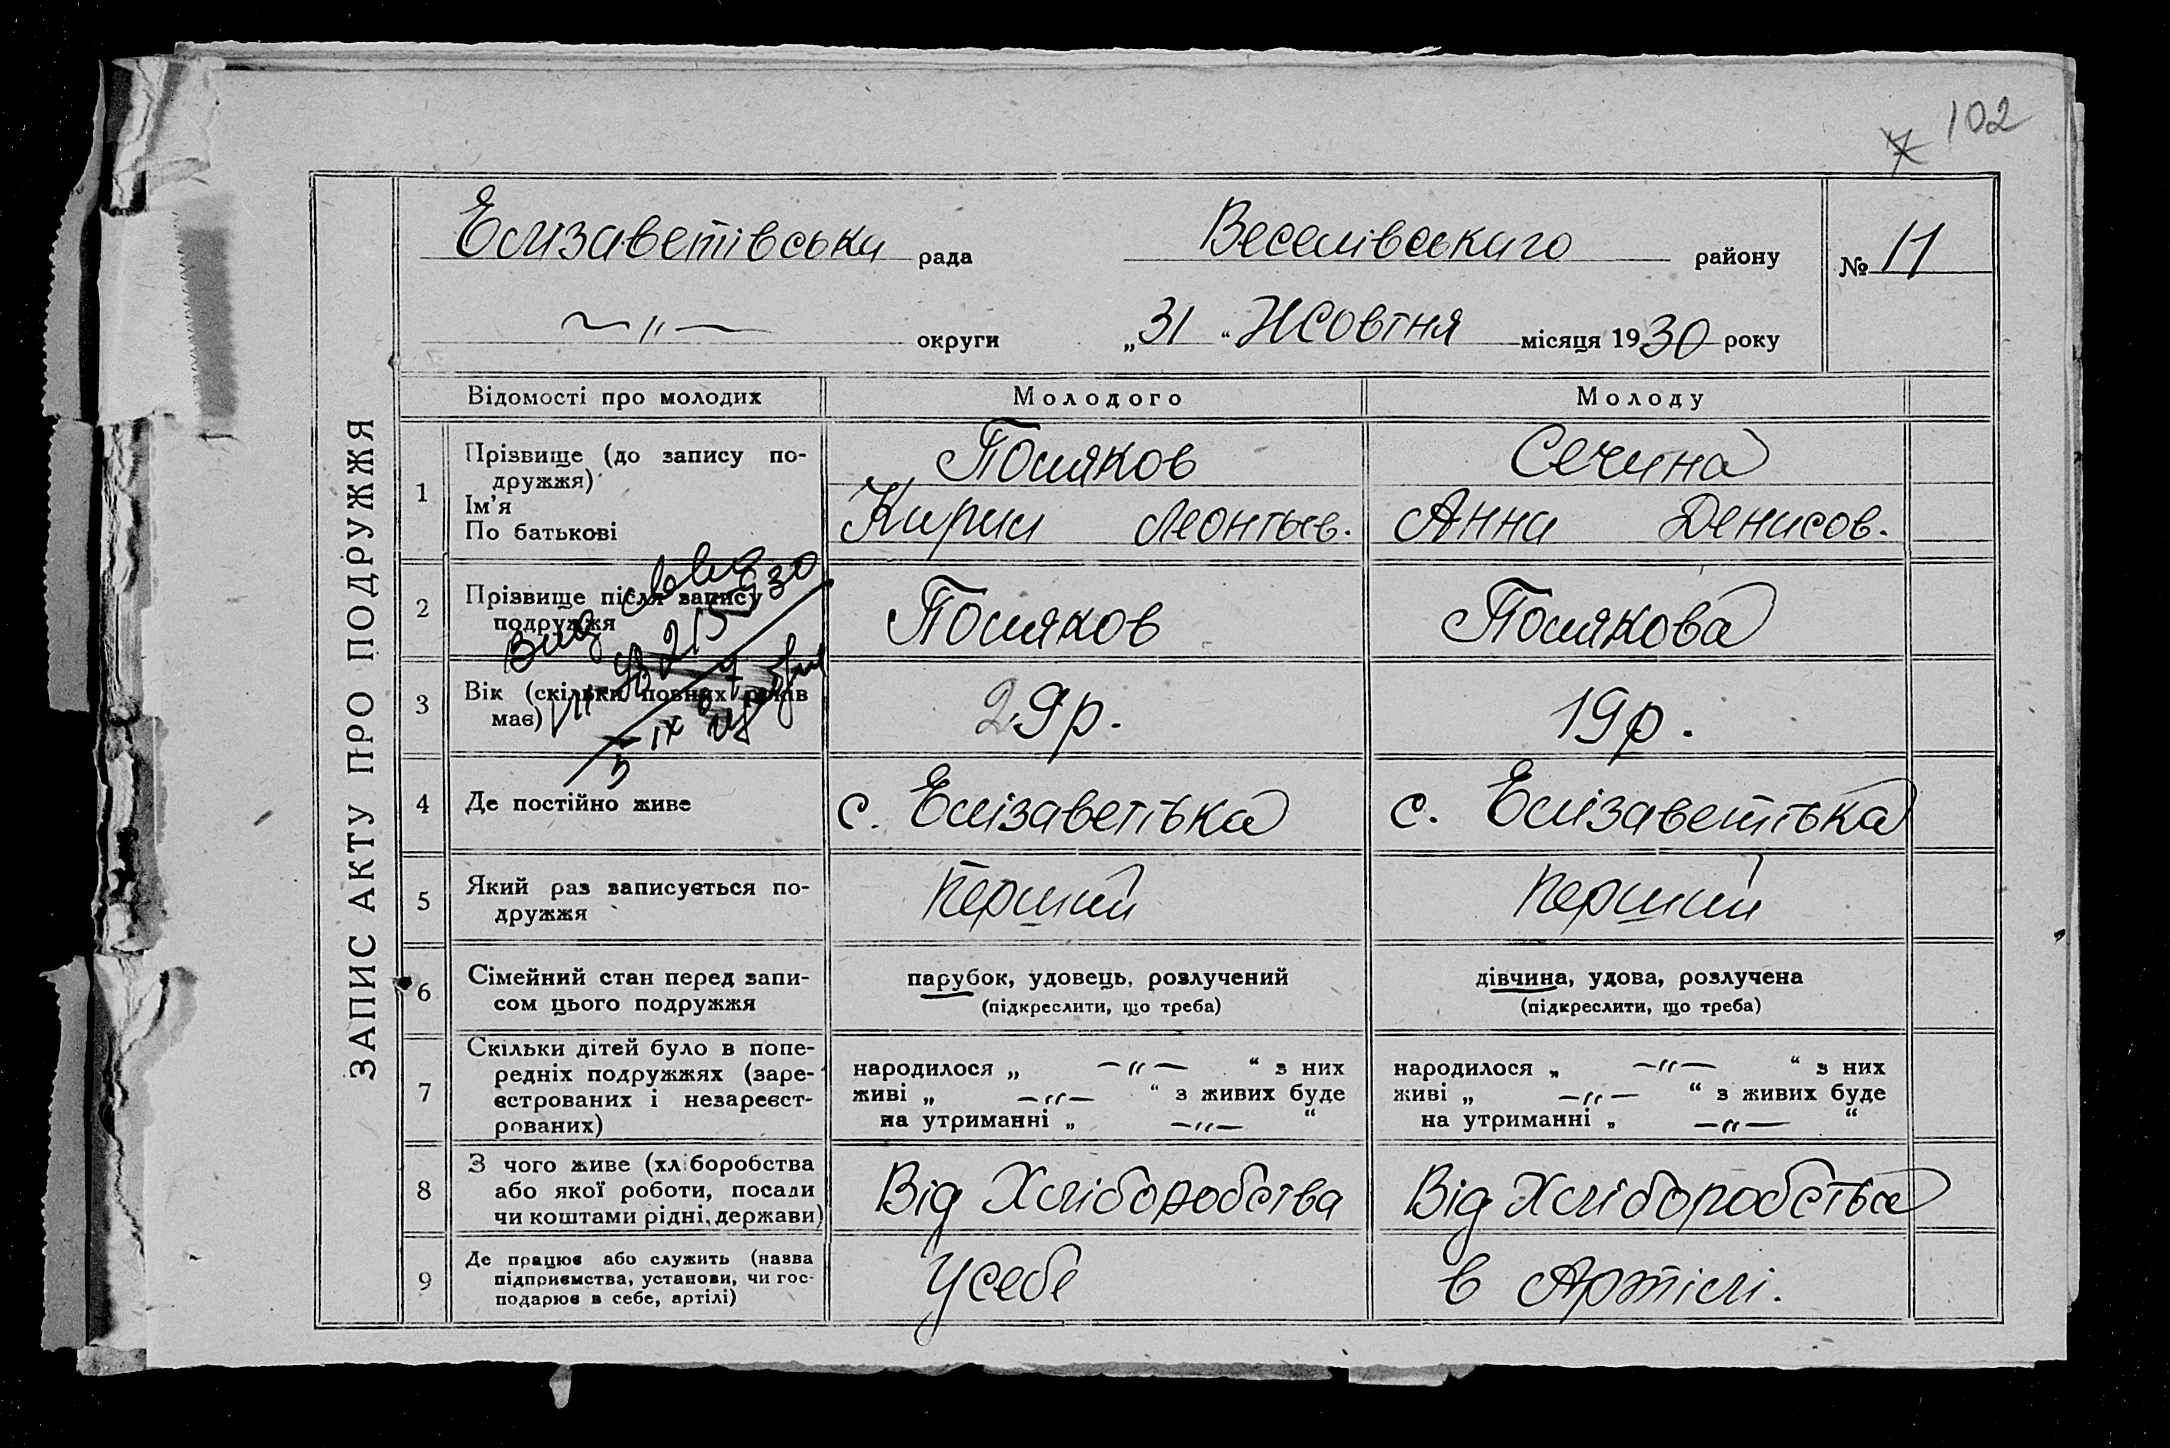 102
Елизаветівська рада Веселівськаго району № 11
— " — округи „31“ Жовтня місяця 1930 року
ЗАПИС АКТУ ПРО ПОДРУЖЖЯ
Відомості про молодих Молодого Молоду
1 Прізвище (до запису по-
дружжя)
Ім'я
По батькові
Поляков Сечина
Кирил Леонтьев. Анна Денисов.
2 Прізвище після запису
подружжя
Поляков Полякова
3 Вік (скільки повних років
має)
29р. 19р.
4 Де постійно живе с. Елізаветівка с. Елізаветівка
5 Який раз записується по-
дружжя
Перший Перший
6 Сімейний стан перед запи-
сом цього подружжя
парубок, удовець, розлучений
(підкреслити, що треба)
дівчина, удова, розлучена
(підкреслити, що треба)
7 Скільки дітей було в попе-
редніх подружжях (заре-
єстрованих і незареєст-
рованих)
народилося „ — " — “ з них
живі „ — " — “ з живих буде
на утриманні „ — " — “
народилося „ — " — “ з них
живі „ — " — “ з живих буде
на утриманні „ — " — “
8 З чого живе (хліборобства
або якої роботи, посади
чи коштами рідні, держави)
Від Хліборобства Від Хліборобства
9 Де працює або служить (назва
підприємства, установи, чи гос-
подарює в себе, артілі)
Усебе в Артілі.